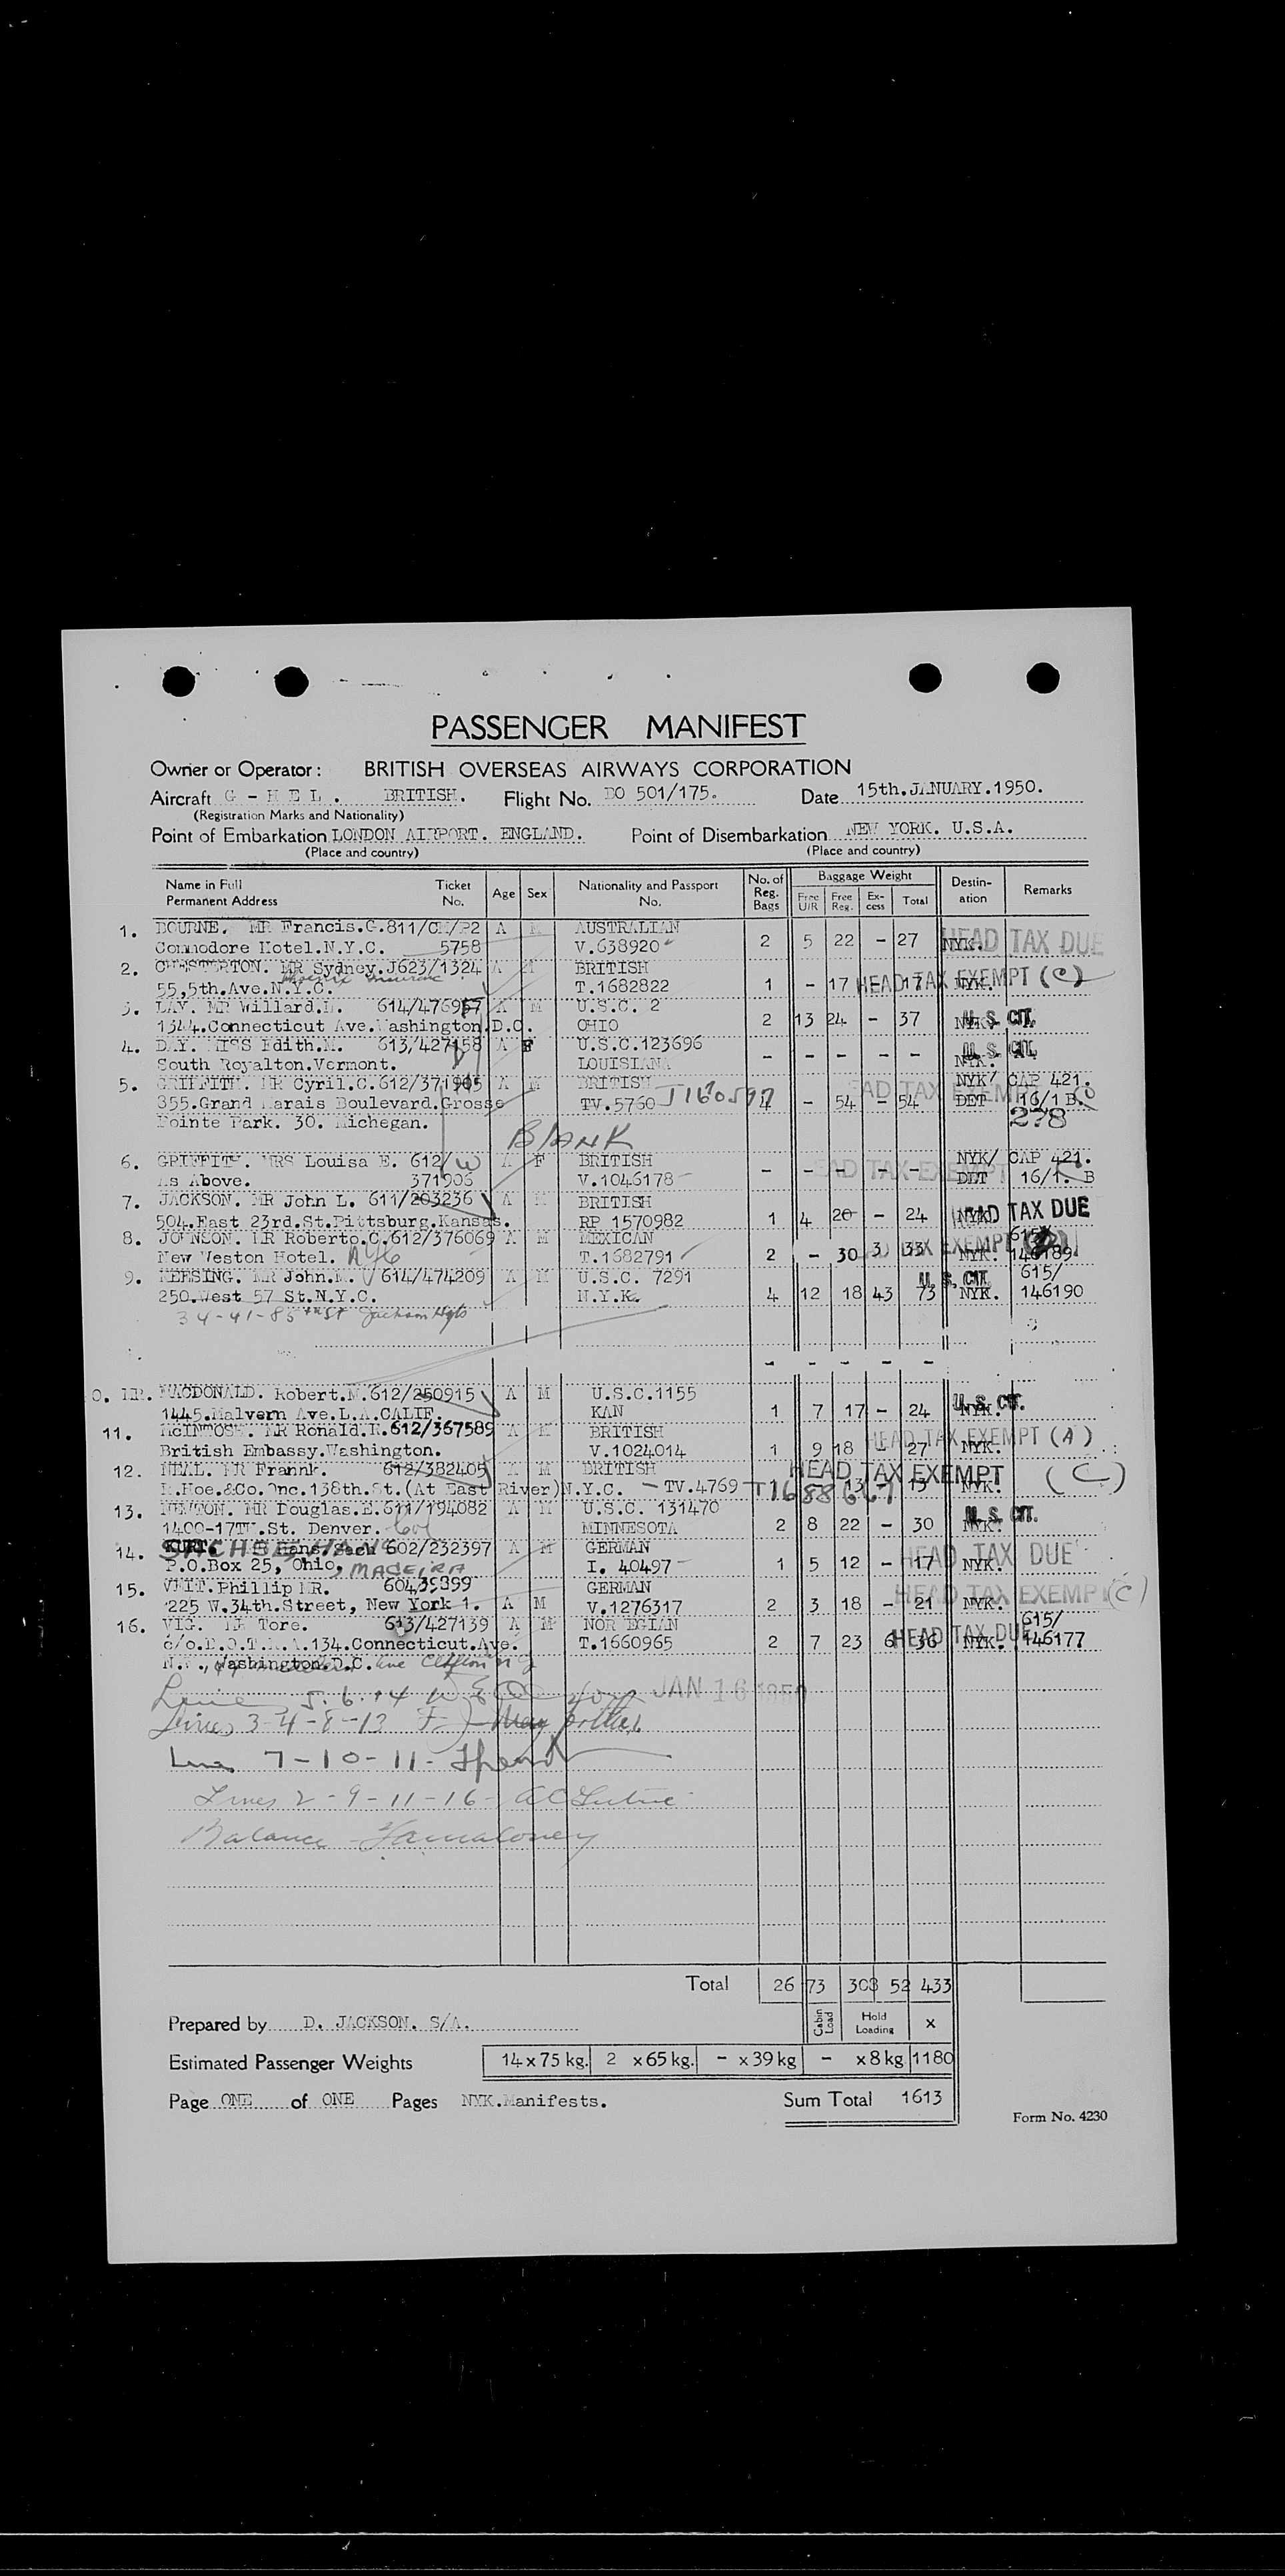 PASSENGER MANIFEST
Owner or Operator: BRITISH OVERSEAS AIRWAYS CORPORATION
Aircraft G - H E L . BRITISH. Flight No. BO 501/175. Date 15th.JANUARY.1950.
(Registration Marks and Nationality)
Point of Embarkation LONDON AIRPORT. ENGLAND. Point of Disembarkation NEW YORK. U.S.A.
(Place and country) (Place and country)
Name in Full Permanent Address Ticket No. Age Sex Nationality and Passport No. No. of Reg. Bags Baggage Weight Free U/R Free Reg. Ex-cess Total Destin-ation Remarks
1. BOURNE. MR Francis.G.811/CK/P2 A M AUSTRALIAN
Commodore Hotel.N.Y.C. 5758 V.638920 2 5 22 - 27 NYK. HEAD TAX DUE
2. CHESTERTON. MR Sydney.J623/1324 A M BRITISH
55,5th.Ave.N.Y.C. T.1682822 1 - 17 - 17 NYK. HEAD TAX EXEMPT (C)
3. MR Willard. 614/476957 A M U.S.C. 2
1344.Connecticut Ave.Washington.D.C. OHIO 2 13 24 - 37 NYK. U. S. CIT.
4. DAY. MISS Edith.M. 613/427158 A F U.S.C.123696
South Royalton.Vermont. LOUISIANA - - - - - NYK. U. S. CIT.
5. GRIFFITH. MR Cyril.C.612/371905 A M BRITISH NYK/ CAP 421.
355.Grand Marais Boulevard.Grosse TV.5760 4 - 54 - 54 DET 16/1 B. HEAD TAX EXEMPT
Pointe Park. 30. Michegan. 278
BLANK
6. GRIFFITH. MRS Louisa E. 612/ A F BRITISH NYK/ CAP 421.
As Above. 371906 V.1046178 - - - - - DET 16/1. B HEAD TAX EXEMPT
7. JACKSON. MR John L. 611/203236 A M BRITISH
504.East 23rd.St.Pittsburg.Kansas. RP 1570982 1 4 20 - 24 NYK. HEAD TAX DUE
8. JOHNSON. MR Roberto.C.612/376069 A M MEXICAN 615/
New Weston Hotel. NYC T.1682791 2 - 30 3 33 NYK. 146189 HEAD TAX EXEMPT
9. MR John.M. 614/474209 A M U.S.C. 7291 U. S. CIT. 615/
250.West 57 St.N.Y.C. N.Y.K. 4 12 18 43 73 NYK. 146190
34-41-85 St Jackson Hgts
- - - - -
0. MR. MACDONALD. Robert.M.612/250915 A M U.S.C.1155
1445.Malvern Ave.L.A.CALIF. KAN 1 7 17 - 24 NYK. U. S. CIT.
11. McINTOSH. MR Ronald.R.612/367589 A M BRITISH
British Embassy.Washington. V.1024014 1 9 18 - 27 NYK. HEAD TAX EXEMPT (A)
12. NEAL. MR Frannk. 612/382405 A M BRITISH HEAD TAX EXEMPT (C)
R.Hoe.&Co.Inc.138th.St.(At East River)N.Y.C. - TV.4769 T1688667 13 NYK.
13. NEWTON. MR Douglas.E.611/194082 A M U.S.C. 131470
1400-17TH.St. Denver. Col MINNESOTA 2 8 22 - 30 NYK. U. S. CIT.
14. KURT. Hans. 602/232397 A M GERMAN
P.O.Box 25, Ohio, MADEIRA I. 40497 1 5 12 - 17 NYK. HEAD TAX DUE
15. VEIT. Phillip MR. 604/39399 GERMAN
225 W.34th.Street, New York 1. A M V.1276317 2 3 18 - 21 NYK. HEAD TAX EXEMPT (C)
16. VIG. MR Tore. 613/427139 A M NORWEGIAN 615/
134.Connecticut.Ave. T.1660965 2 7 23 6 36 NYK. 146177 HEAD TAX DUE
Washington.D.C. Clifton NJ
5. 6. 14 JAN 16 1950
Lines 3-4-8-13
7-10-11-
Lines 2-9-11-16-
Balance
Total 26 73 308 52 433
Cabin Load Hold Loading x
Prepared by D. JACKSON. S/A.
Estimated Passenger Weights 14 x 75 kg. 2 x 65 kg. - x 39 kg - x 8 kg 1180
Page ONE of ONE Pages NYK.Manifests. Sum Total 1613
Form No. 4230